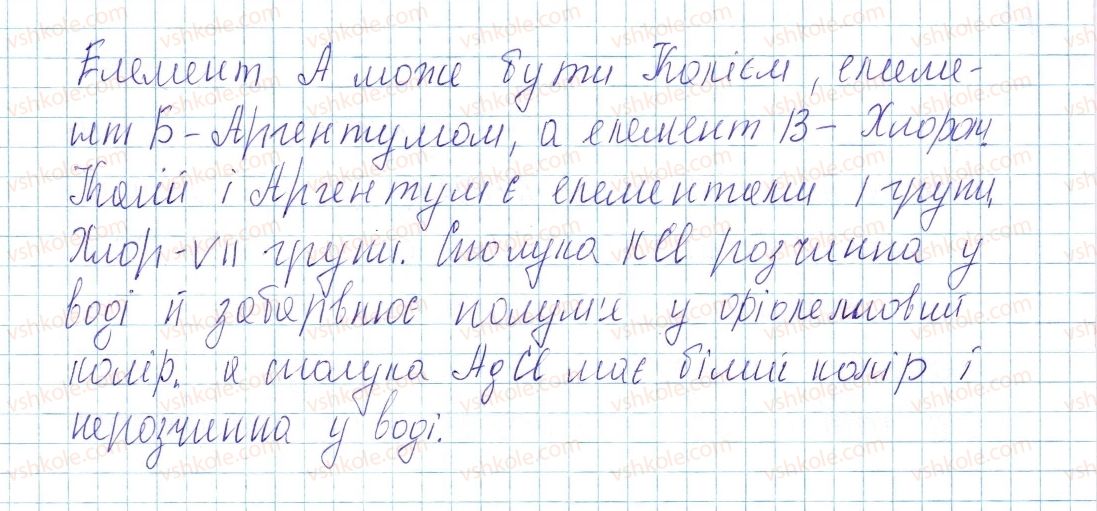 Елемент А може бути Калієм, елеме-
нт Б - Аргентумом, а елемент В - Хлором.
Калій і Аргентум є елементами І групи,
Хлор - VII групи. Сполука KCl розчинна у
воді й забарвлює полум'я у фіолетовий
колір, а сполука AgCl має білий колір і
нерозчинна у воді.